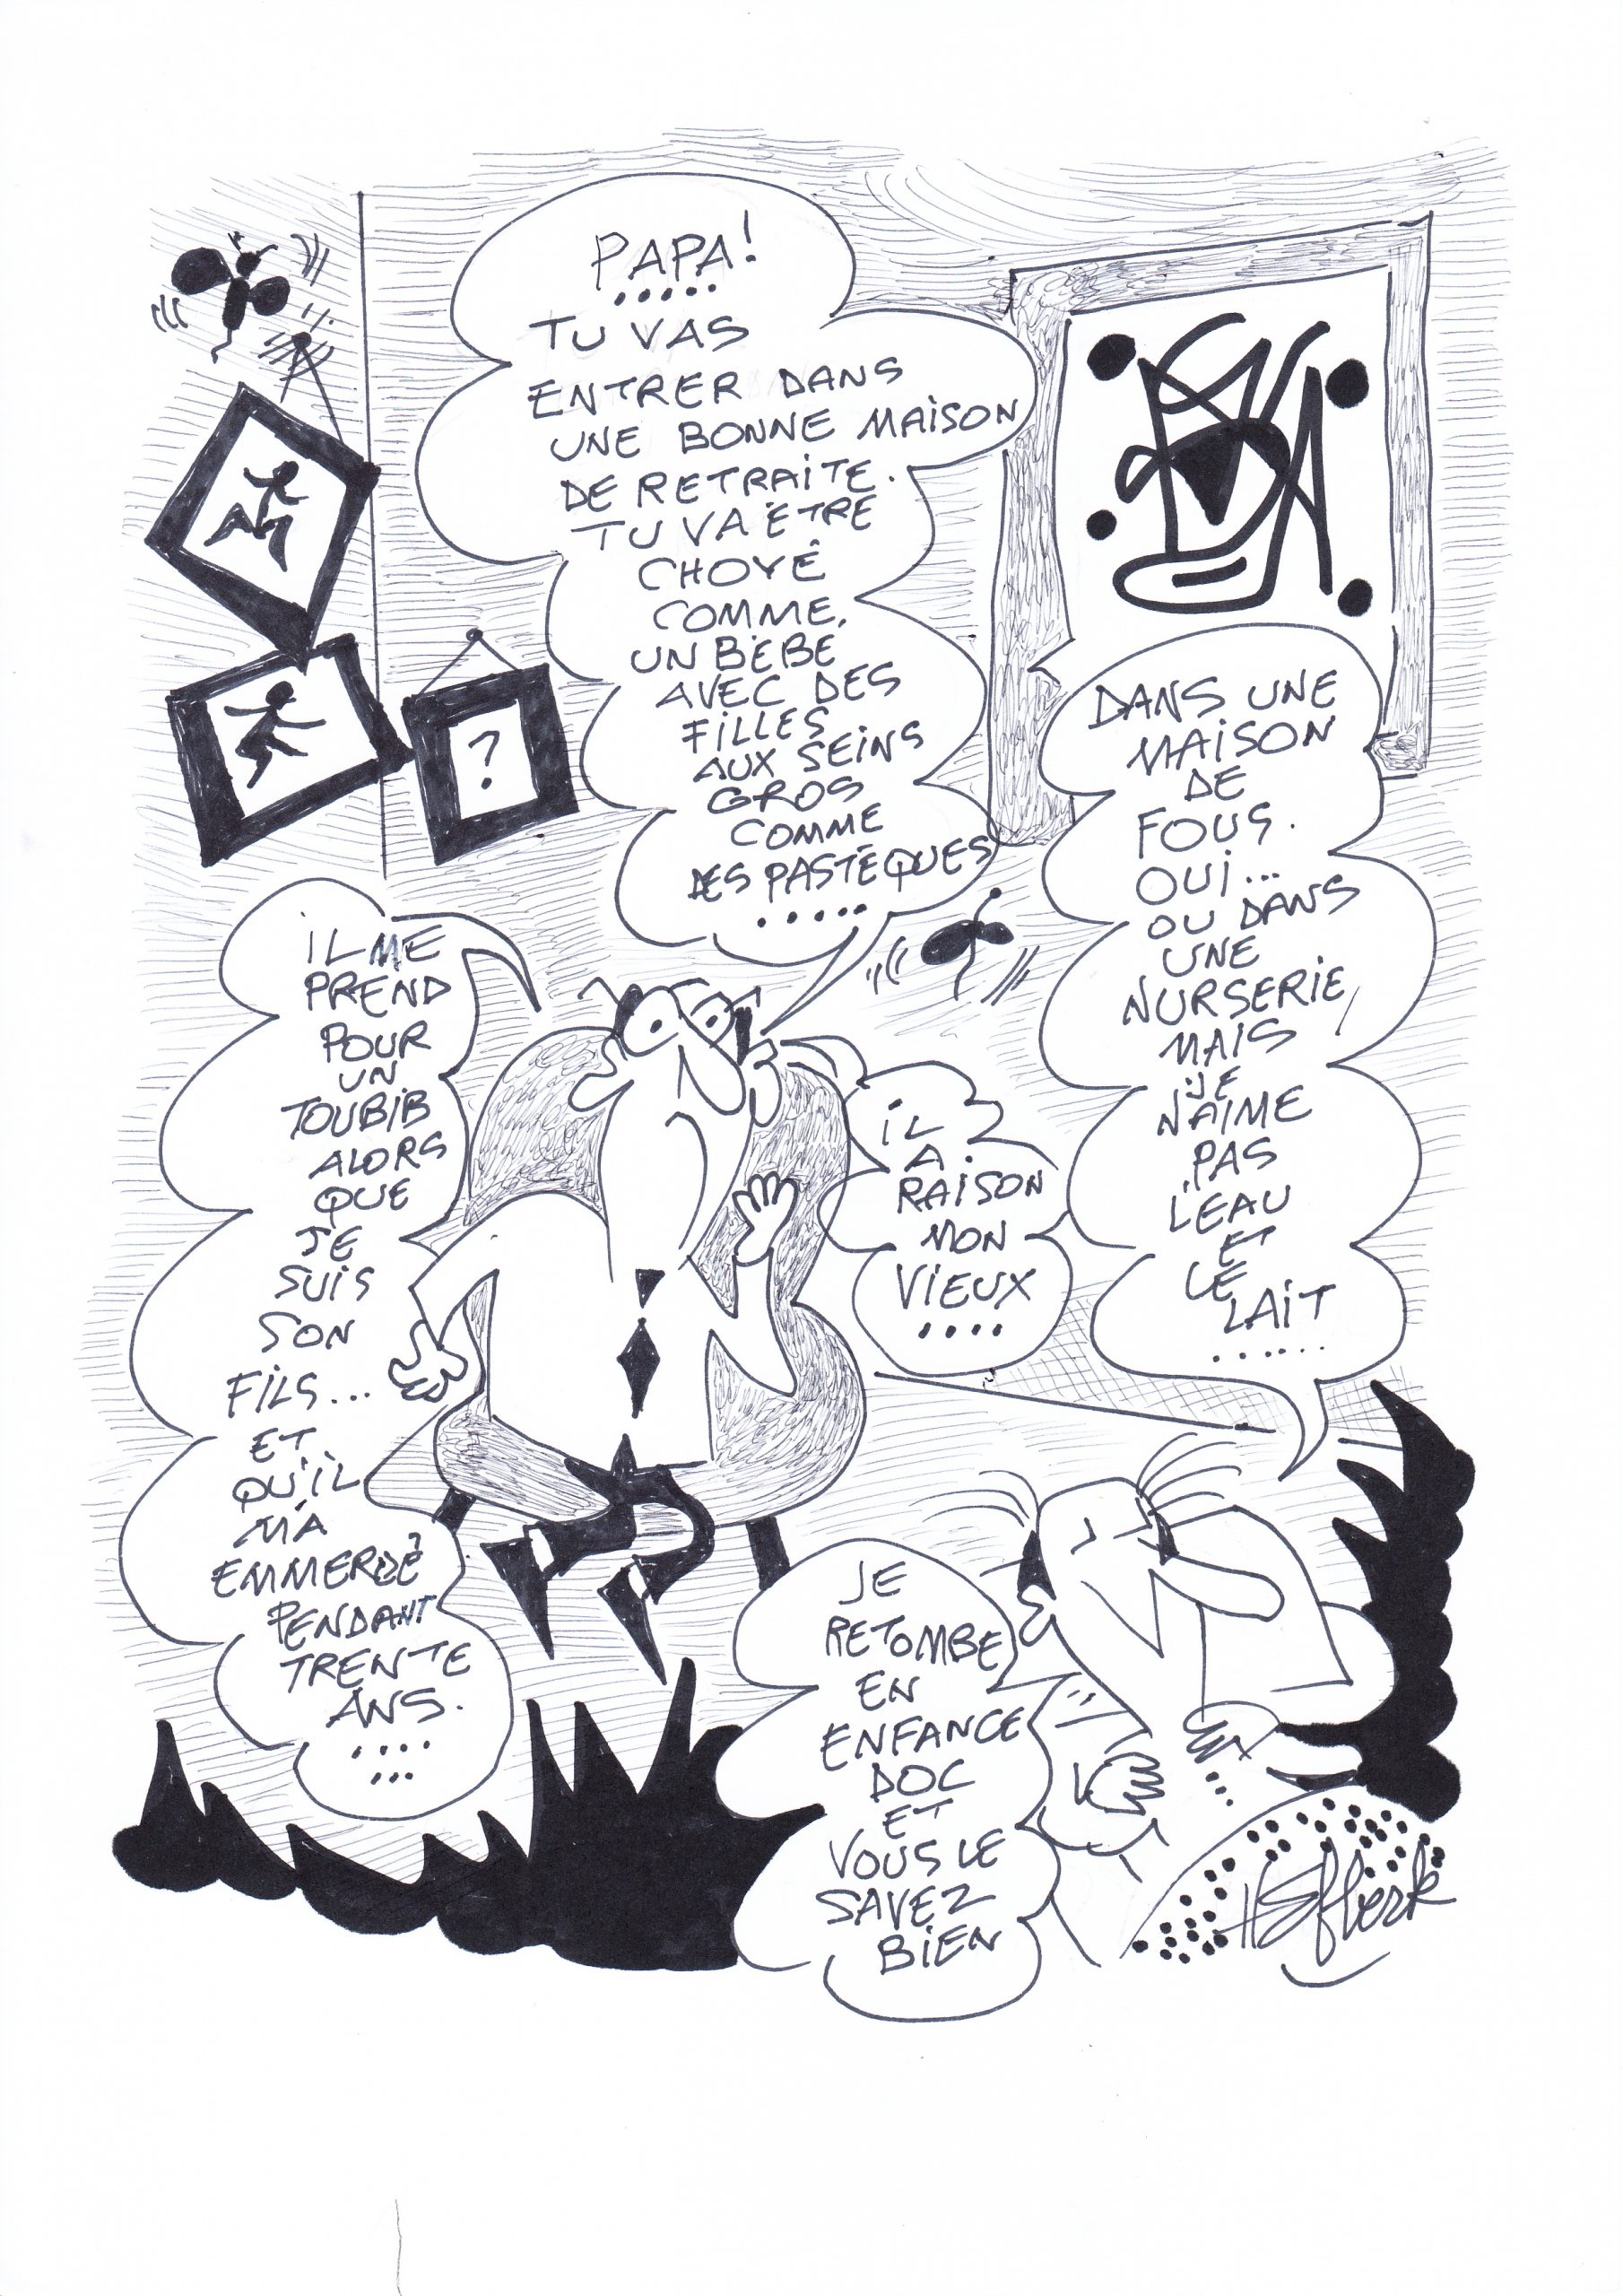 PAPA!
.....
TU VAS
ENTRER DANS
UNE BONNE MAISON
DE RETRAITE.
TU VA ÊTRE
CHOYÉ
COMME,
UN BÉBÉ
AVEC DES
FILLES
AUX SEINS
GROS
COMME
DES PASTÈQUES
.....
DANS UNE
MAISON
DE
FOUS.
OUI...
OU DANS
UNE
NURSERIE,
MAIS
JE
N'AIME
PAS
L'EAU
ET
LE
LAIT
......
?
IL ME
PREND
POUR
UN
TOUBIB
ALORS
QUE
JE
SUIS
SON
FILS...
ET
QU'IL
M'A
EMMERDÉ
PENDANT
TRENTE
ANS.
....
...
IL
A
RAISON
MON
VIEUX
....
JE
RETOMBE
EN
ENFANCE
DOC
ET
VOUS LE
SAVEZ
BIEN